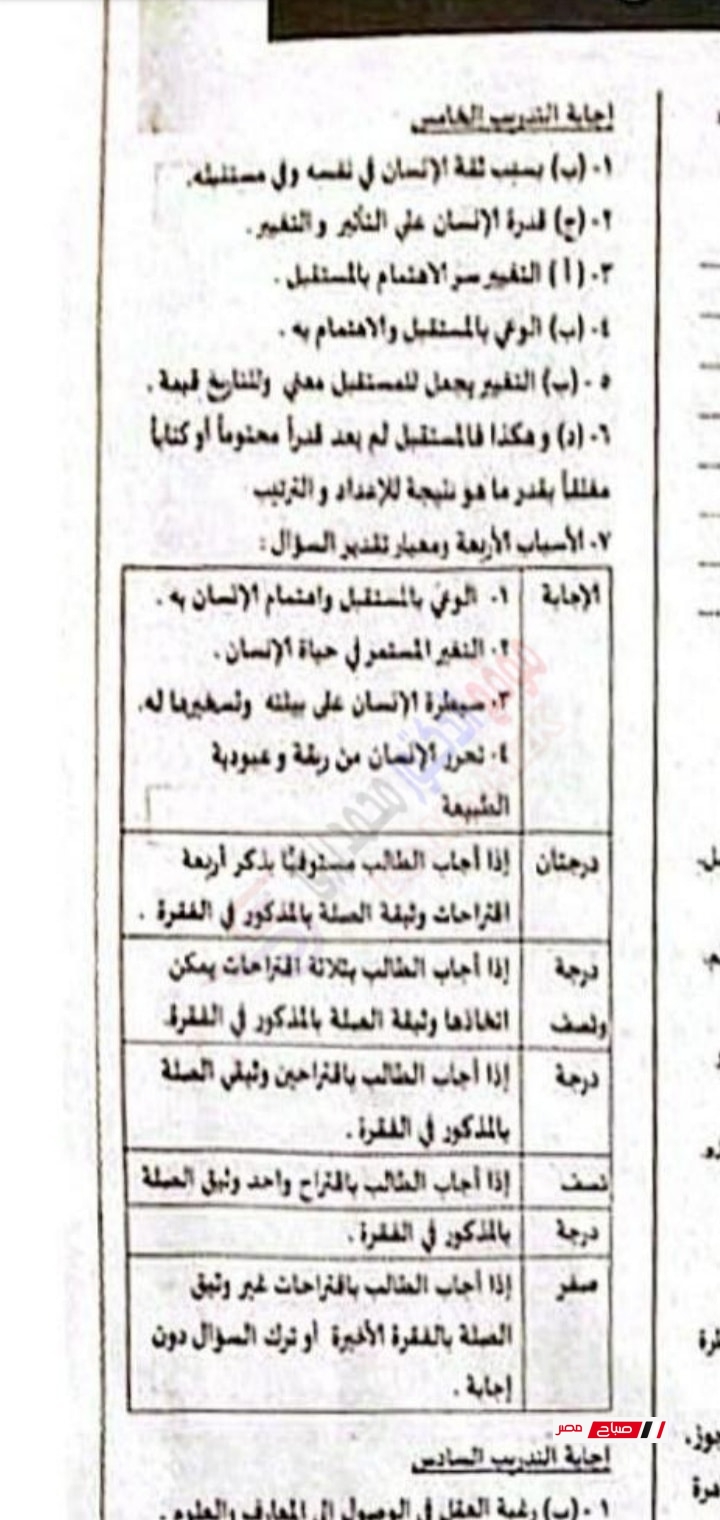 إجابة التدريب الخامس
١- (ب) بسبب ثقة الإنسان في نفسه وفي مستقبله.
٢- (ج) قدرة الإنسان علي التأثير والتغيير.
٣- (أ) التغيير سر الاهتمام بالمستقبل.
٤- (ب) الوعي بالمستقبل والاهتمام به.
٥- (ب) التغيير يجعل للمستقبل معني وللتاريخ قيمة.
٦- (د) وهكذا فالمستقبل لم يعد قدراً محتوماً أو كتاباً
مغلقاً بقدر ما هو نتيجة للإعداد والترتيب
٧- الأسباب الأربعة ومعيار تقدير السؤال:
الإجابة ١- الوعي بالمستقبل واهتمام الإنسان به.
٢- التغير المستمر في حياة الإنسان.
٣- سيطرة الإنسان على بيئته وتسخيرها له.
٤- تحرر الإنسان من ربقة وعبودية
الطبيعة
درجتان إذا أجاب الطالب مستوفيًا بذكر أربعة
اقتراحات وثيقة الصلة بالمذكور في الفقرة.
درجة إذا أجاب الطالب بثلاثة اقتراحات يمكن
ونصف اتخاذها وثيقة الصلة بالمذكور في الفقرة.
درجة إذا أجاب الطالب باقتراحين وثيقي الصلة
بالمذكور في الفقرة.
نصف إذا أجاب الطالب باقتراح واحد وثيق الصلة
درجة بالمذكور في الفقرة.
صفر إذا أجاب الطالب باقتراحات غير وثيق
الصلة بالفقرة الأخيرة أو ترك السؤال دون
إجابة.
صباح مصر
إجابة التدريب السادس
١- (ب) رغبة العقل في الوصول إلى المعارف والعلوم.